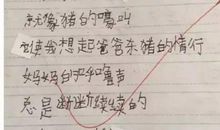 就像猪的嚎叫
使我想起爸爸杀猪的情行
妈妈的呼噜声
总是断断续续的